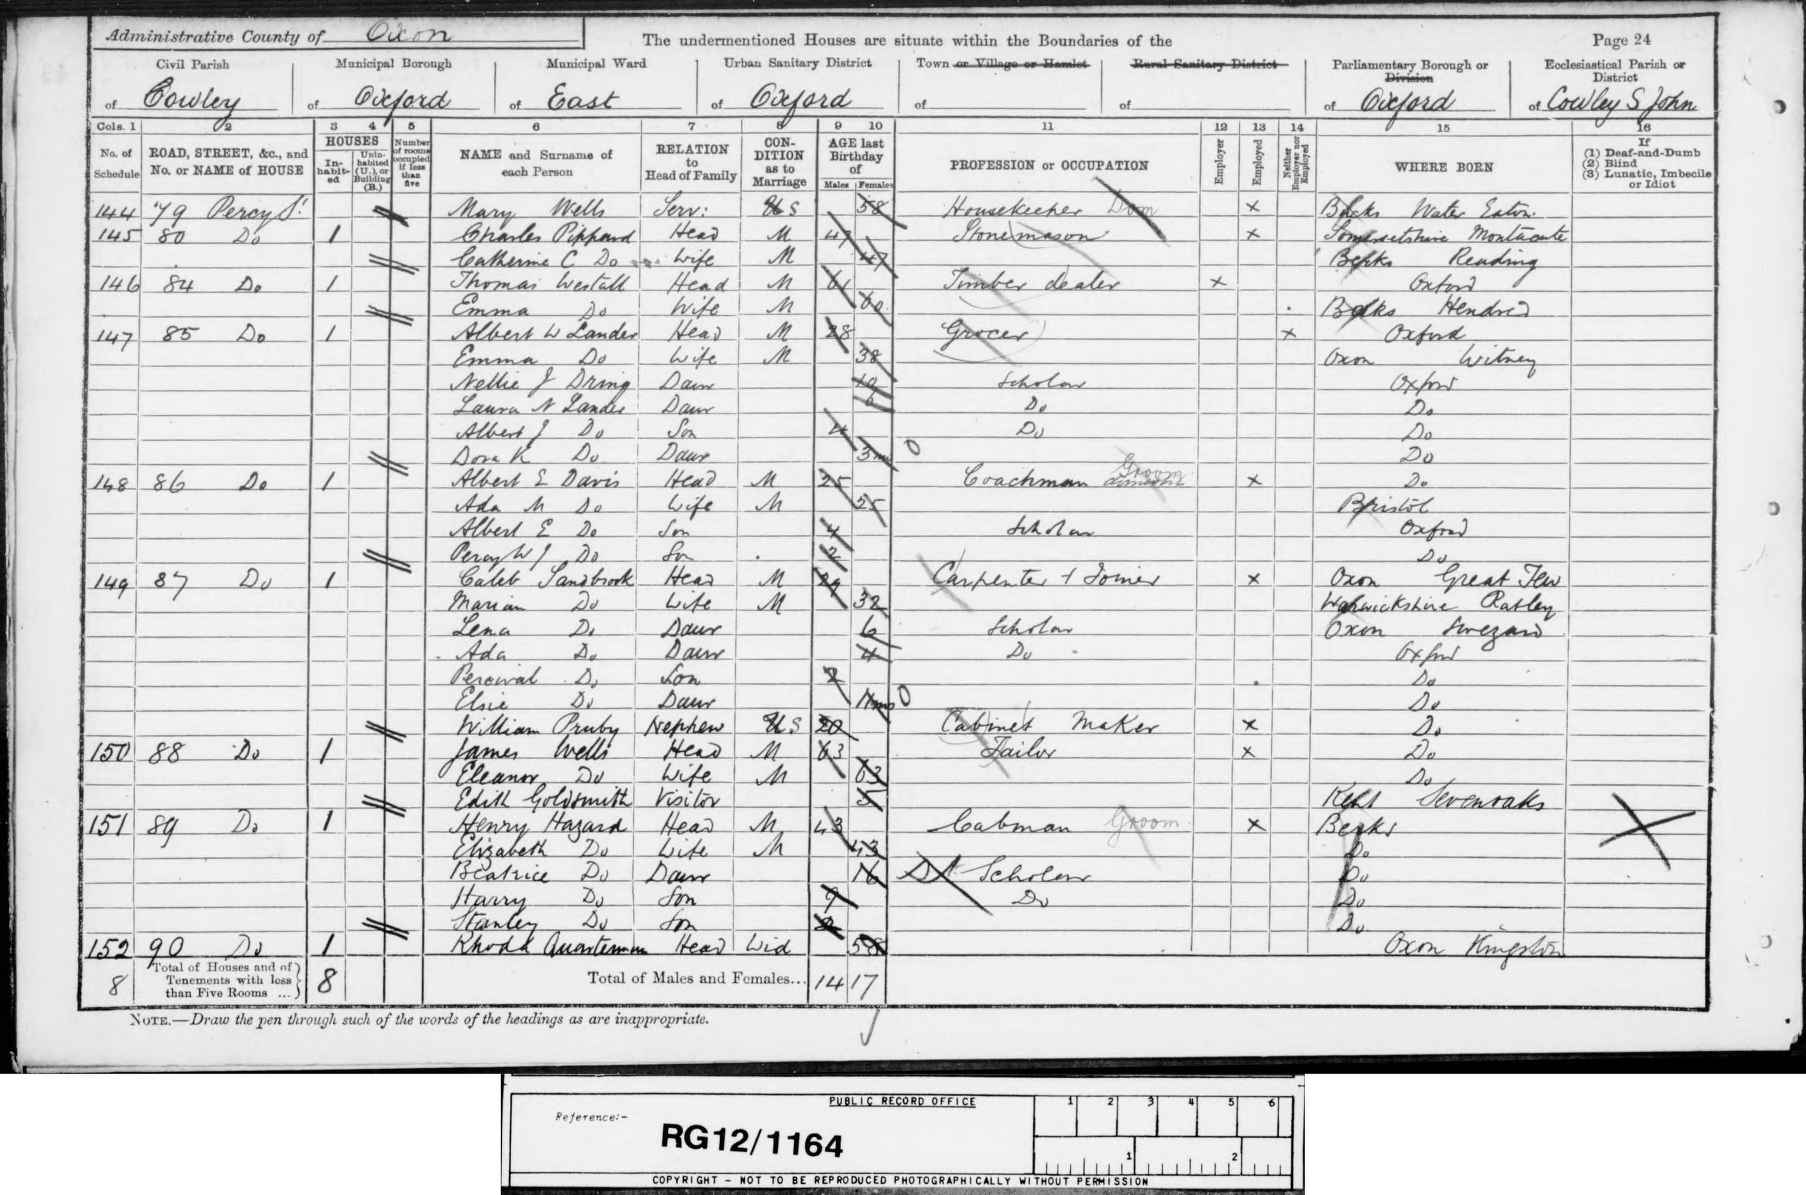 Administrative County of Oxon
The undermentioned Houses are situate within the Boundaries of the
Page 24
Civil Parish of Cowley
Municipal Borough of Oxford
Municipal Ward of East
Urban Sanitary District of Oxford
Town or Village or Hamlet of
Rural Sanitary District of
Parliamentary Borough or Division of Oxford
Ecclesiastical Parish or District of Cowley S John
Cols. 1 2 3 4 5 6 7 8 9 10 11 12 13 14 15 16
No. of Schedule
ROAD, STREET, &c., and No. or NAME of HOUSE
HOUSES
In-habit-ed
Unin-habited (U.), or Building (B.)
Number of rooms occupied if less than five
NAME and Surname of each Person
RELATION to Head of Family
CON-DITION as to Marriage
AGE last Birthday of
Males Females
PROFESSION or OCCUPATION
Employer
Employed
Neither Employer nor Employed
WHERE BORN
If (1) Deaf-and-Dumb (2) Blind (3) Lunatic, Imbecile or Idiot
144 79 Percy St Mary Wells Serv: S 58 Housekeeper Dom x Bucks Water Eaton
145 80 Do 1 Charles Pippard Head M 47 Stonemason x Somersetshire Montacute
Catherine C Do Wife M 47 Berks Reading
146 84 Do 1 Thomas Westall Head M 61 Timber dealer x Oxford
Emma Do Wife M 60 Berks Hendred
147 85 Do 1 Albert W Lander Head M 28 Grocer x Oxford
Emma Do Wife M 38 Oxon Witney
Nellie J Dring Daur 10 Scholar Oxford
Laura N Lander Daur 6 Do Do
Albert J Do Son 4 Do Do
Dora K Do Daur 3 mo Do
148 86 Do 1 Albert E Davis Head M 25 Coachman Groom x Do
Ada M Do Wife M 25 Bristol
Albert E Do Son 4 Scholar Oxford
Percy W J Do Son 2 Do
149 87 Do 1 Caleb Sandbrook Head M 29 Carpenter & Joiner x Oxon Great Tew
Marian Do Wife M 32 Warwickshire Ratley
Lena Do Daur 6 Scholar Oxon
Ada Do Daur 4 Do Oxford
Percival Do Son 2 Do
Elsie Do Daur 11 mos Do
William Nephew S 20 Cabinet Maker x Do
150 88 Do 1 James Wells Head M 63 Tailor x Do
Eleanor Do Wife M 63 Do
Edith Goldsmith Visitor 5 Kent Sevenoaks
151 89 Do 1 Henry Hazard Head M 43 Cabman Groom x Berks
Elizabeth Do Wife M 43 Do
Beatrice Do Daur 16 Scholar Do
Harry Do Son 9 Do Do
Stanley Do Son 2 Do
152 90 Do 1 Rhoda Quarterman Head Wid 58 Oxon Kingston
8 Total of Houses and of Tenements with less than Five Rooms ... 8 Total of Males and Females... 14 17
NOTE.—Draw the pen through such of the words of the headings as are inappropriate.
PUBLIC RECORD OFFICE
1 2 3 4 5 6
Reference:-
RG12/1164
1 2
COPYRIGHT - NOT TO BE REPRODUCED PHOTOGRAPHICALLY WITHOUT PERMISSION